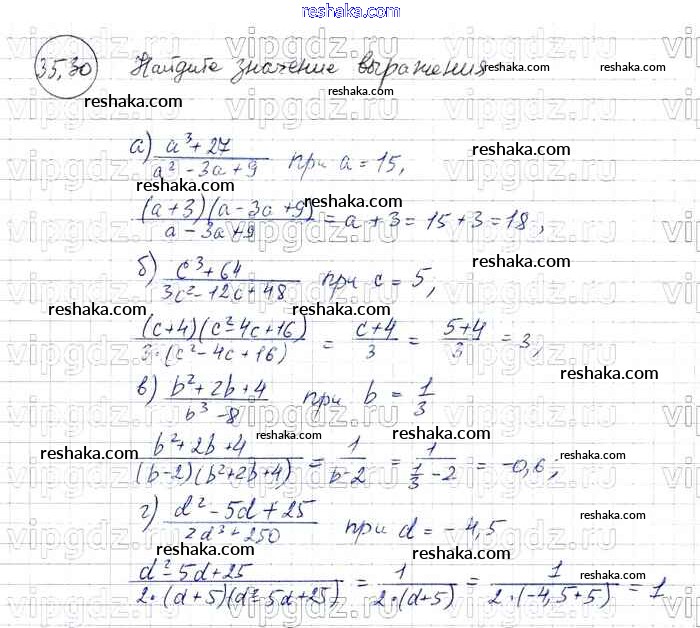 reshaka.com
35,30 Найдите значение выражения
reshaka.com
а) a³+27 / a²-3a+9 при a=15,
(a+3)(a-3a+9) / a-3a+9 = a+3 = 15+3 = 18,
б) c³+64 / 3c²-12c+48 при c = 5,
(c+4)(c²-4c+16) / 3·(c²-4c+16) = c+4 / 3 = 5+4 / 3 = 3,
в) b²+2b+4 / b³-8 при b = 1/3
b²+2b+4 / (b-2)(b²+2b+4) = 1 / b-2 = 1 / 1/3-2 = -0,6;
г) d²-5d+25 / 2d³+250 при d = -4,5
d²-5d+25 / 2·(d+5)(d²-5d+25) = 1 / 2·(d+5) = 1 / 2·(-4,5+5) = 1
vipgdz.ru